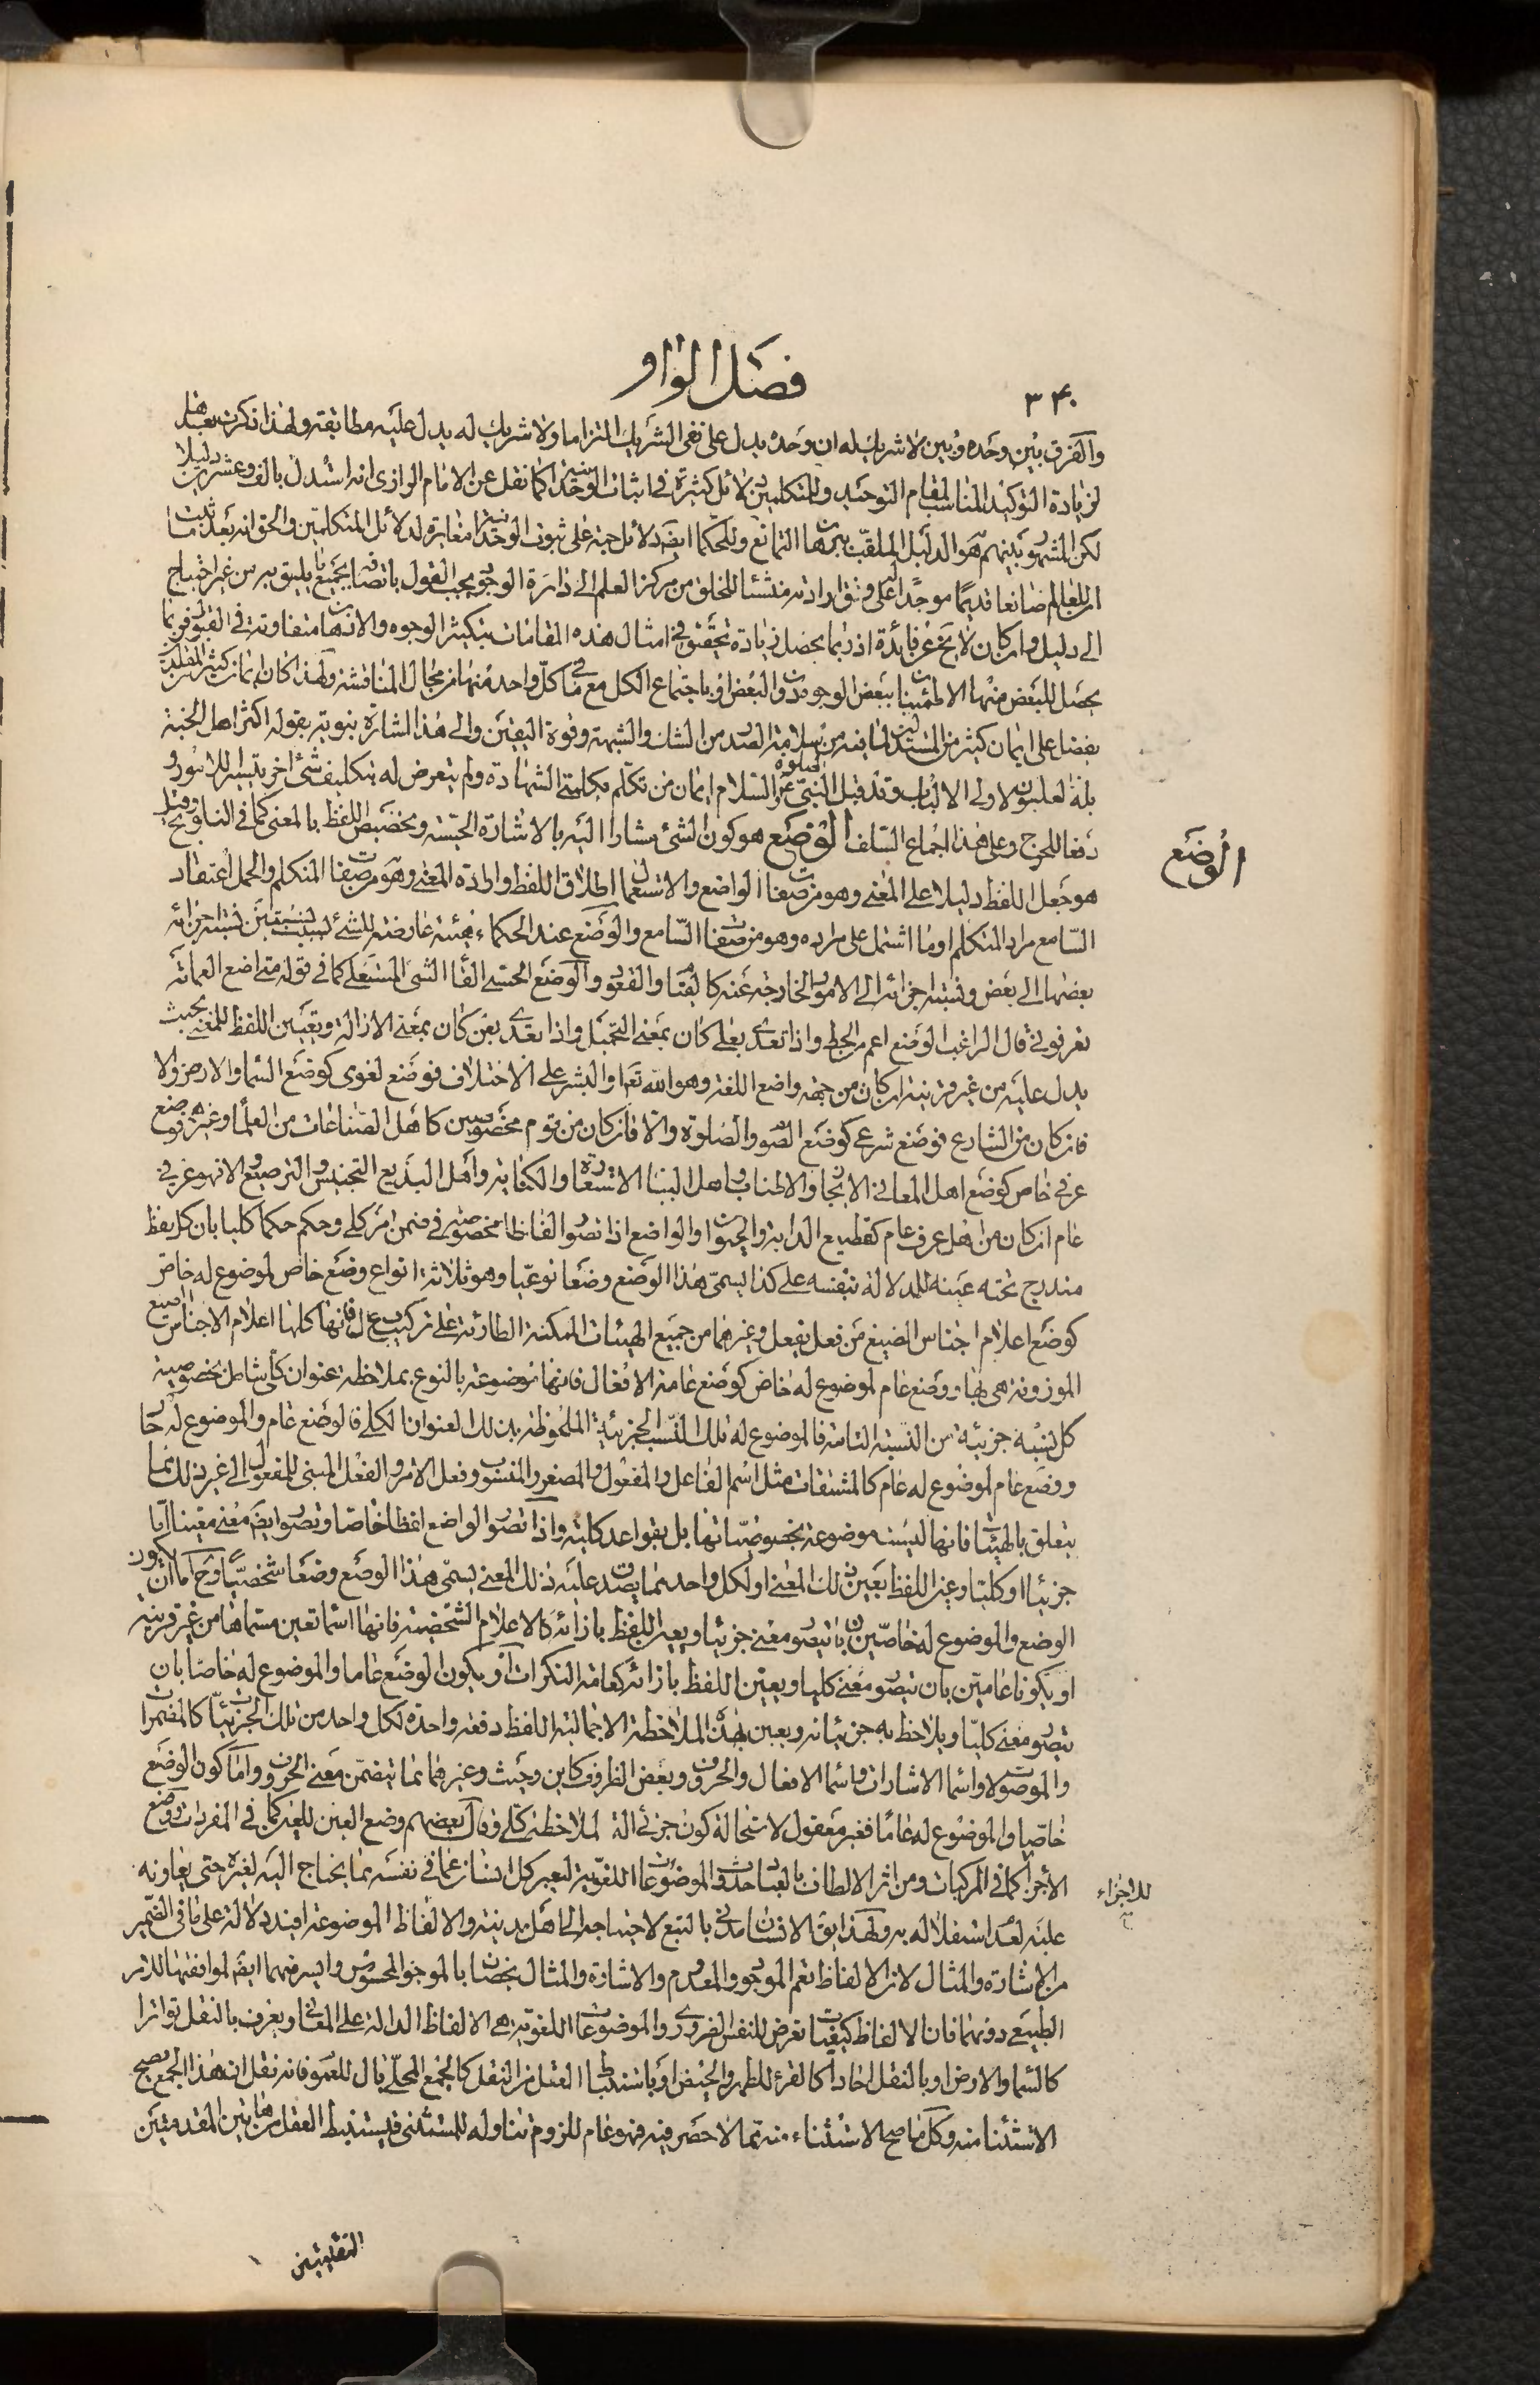 ٣٤٠
فصل الواو
والفرق بين وحده وبين لا شريك له ان وحده يدل على نفى الشريك التزاما ولا شريك له يدل عليه مطابقة ولهذا ذكرت بعدها
لزيادة التوكيد المناسب لمقام التوحيد وللمتكلمين دلائل كثيرة في اثبات الوحدانية كما نقل عن الامام الرازى انه استدل بالف وعشرين دليلا
لكن المشهور بينهم هو الدليل الملقب ببرهان التمانع وللحكماء ايضا دلائل جمة على ثبوت الوحدانية مغايرة لدلائل المتكلمين والحق انه بعد ثبت
ان للعالم صانعا قديما موجدا على وفق ارادته منشئا للخلق من مركز العلم الى دائرة الوجود يجب القول باتصافه بجميع ما يليق به من غير احتياج
الى دليل وان كان لا يخ عن فائدة اذ ربما يحصل زيادة تحقيق في امثال هذه المقامات بتكثير الوجوه والاذهان متفاوتة في القبول فربما
يحصل للبعض منها الاطمئنان ببعض الوجوه دون البعض او باجتماع الكل مع ما في كل واحد منها من مجال المناقشة ولهذا كان ايمان كثير من المقلدين
يفضل على ايمان كثير من المستدلين لما فيه من سلامة الصدر من الشك والشبهة وقوة اليقين والى هذا اشارة نبوية بقوله اكثر اهل الجنة
بله لعليون لاولى الالباب وقد قبل النبى عليه الصلوة والسلام ايمان من تكلم بكلمتى الشهادة ولم يتعرض له بتكليف شئ اخر تيسيرا للامور و
دفعا للحرج وعلى هذا اجماع السلف الوضع هو كون الشئ مشارا اليه بالاشارة الحسية وتخصيص اللفظ بالمعنى كما في التلويح وقيل
هو جعل اللفظ دليلا على المعنى وهو من صفات الواضع والاستعمال اطلاق اللفظ وارادة المعنى وهو من صفات المتكلم والحمل اعتقاد
السامع مراد المتكلم او ما اشتمل على مراده وهو من صفات السامع والوضع عند الحكماء هيئة عارضة للشئ بسبب نسبتين نسبة اجزائه
بعضها الى بعض ونسبة اجزائه الى الامور الخارجة عنه كالقيام والقعود والوضع الحسى القاء الشئ المستعلى كما في قوله متى اضع العمامة
تعرفونى قال الراغب الوضع اعم من الحط واذا تعدى بعلى كان بمعنى التحميل واذا تعدى بعن كان بمعنى الازالة وتعيين اللفظ للمعنى بحيث
يدل عليه من غير قرينة ان كان من جهة واضع اللغة وهو الله تعا او البشر على الاختلاف فوضع لغوى كوضع السماء والارض والا
فان كان من الشارع فوضع شرعى كوضع الصوم والصلوة والا فان كان من قوم مخصوصين كاهل الصناعات من العلماء وغيرهم فوضع
عرفى خاص كوضع اهل المعانى الايجاز والاطناب واهل البيان الاستعارة والكناية واهل البديع التجنيس والترصيع والا فهو عرفى
عام ان كان من اهل عرف عام كقطيع الدابة والحيوان والواضع اذا تصور الفاظا مخصوصة في ضمن امر كلى وحكم حكما كليا بان كل لفظ
مندرج تحته عينه للدلالة بنفسه على كذا يسمى هذا الوضع وضعا نوعيا وهو ثلاثة انواع وضع خاص لموضوع له خاص
كوضع اعلام اجناس الصيغ من فعل يفعل وغيرهما من جميع الهيئات الممكنة الطارئة على تركيب ف ع ل فانها كلها اعلام الاجناس صيغ
الموزونة هى بها ووضع عام لموضوع له خاص كوضع عامة الافعال فانها موضوعة بالنوع بملاحظة عنوان كلى شامل بخصوصية
كل نسبة جزئية من النسبة التامة فالموضوع له تلك النسب الجزئية الملحوظة بذلك العنوان الكلى فالوضع عام والموضوع له خاص
ووضع عام لموضوع له عام كالمشتقات مثل اسم الفاعل والمفعول والمصغر والمنسوب وفعل الامر والفعل المبنى للمفعول الى غير ذلك مما
يتعلق بالهيئات فانها ليست موضوعة بخصوصياتها بل بقواعد كلية واذا تصور الواضع لفظا خاصا وتصور ايضا معنى معينا اما
جزئيا او كليا وعين اللفظ بعينه لذلك المعنى او لكل واحد مما يصدق عليه ذلك المعنى يسمى هذا الوضع وضعا شخصيا وح اما ان يكون
الوضع والموضوع له خاصين بان يتصور معنى جزئيا ويعين اللفظ بازائه كالاعلام الشخصية فانها اسماء تعين مسماها من غير قرينة
او يكونا عامين بان يتصور معنى كليا ويعين اللفظ بازائه كعامة النكرات او يكون الوضع عاما والموضوع له خاصا بان
يتصور معنى كليا ويلاحظ به جزئياته ويعين بهذه الملاحظة الاجمالية اللفظ دفعة واحدة لكل واحد من تلك الجزئيات كالمضمرات
والموصولات واسماء الاشارات واسماء الافعال والحروف وبعض الظروف كاين وحيث وغيرهما مما يتضمن معنى الحروف واما كون الوضع
خاصا والموضوع له عاما فغير معقول لاستحالة كون جزئى الة لملاحظة كلى وقال بعضهم وضع العين للعين كما في المفردات ووضع
الاجزاء كما في المركبات ومن اثر الالطاف بالعباد حدوث الموضوعات اللغوية ليعبر كل انسان عما في نفسه مما يحتاج اليه لغيره حتى يعاونه
عليه لعدم استقلاله به ولهذا يق الانسان مدنى بالطبع لاحتياجه الى اهل مدينته والالفاظ الموضوعة افيد دلالة على ما في الضمير
من الاشارة والمثال لان الالفاظ تعم الموجود والمعدوم والاشارة والمثال يخصان بالموجود المحسوس وايسر منهما ايضا لموافقتها للامر
الطبيعى دونهما فان الالفاظ كيفيات تعرض للنفس الضرورى والموضوعات اللغوية هى الالفاظ الدالة على المعانى ويعرف بالنقل تواترا
كالسماء والارض او بالنقل احادا كالقرء للطهر والحيض او باستنباط العقل من النقل كالجمع المحلى بال للعموم فانه نقل ان هذا الجمع يصح
الاستثناء منه وكل ما صح الاستثناء منه مما لا حصر فيه فهو عام للزوم تناوله للمستثنى فيستنبط العقل من هاتين المقدمتين
النقليتين
الوضع
للاجزاء